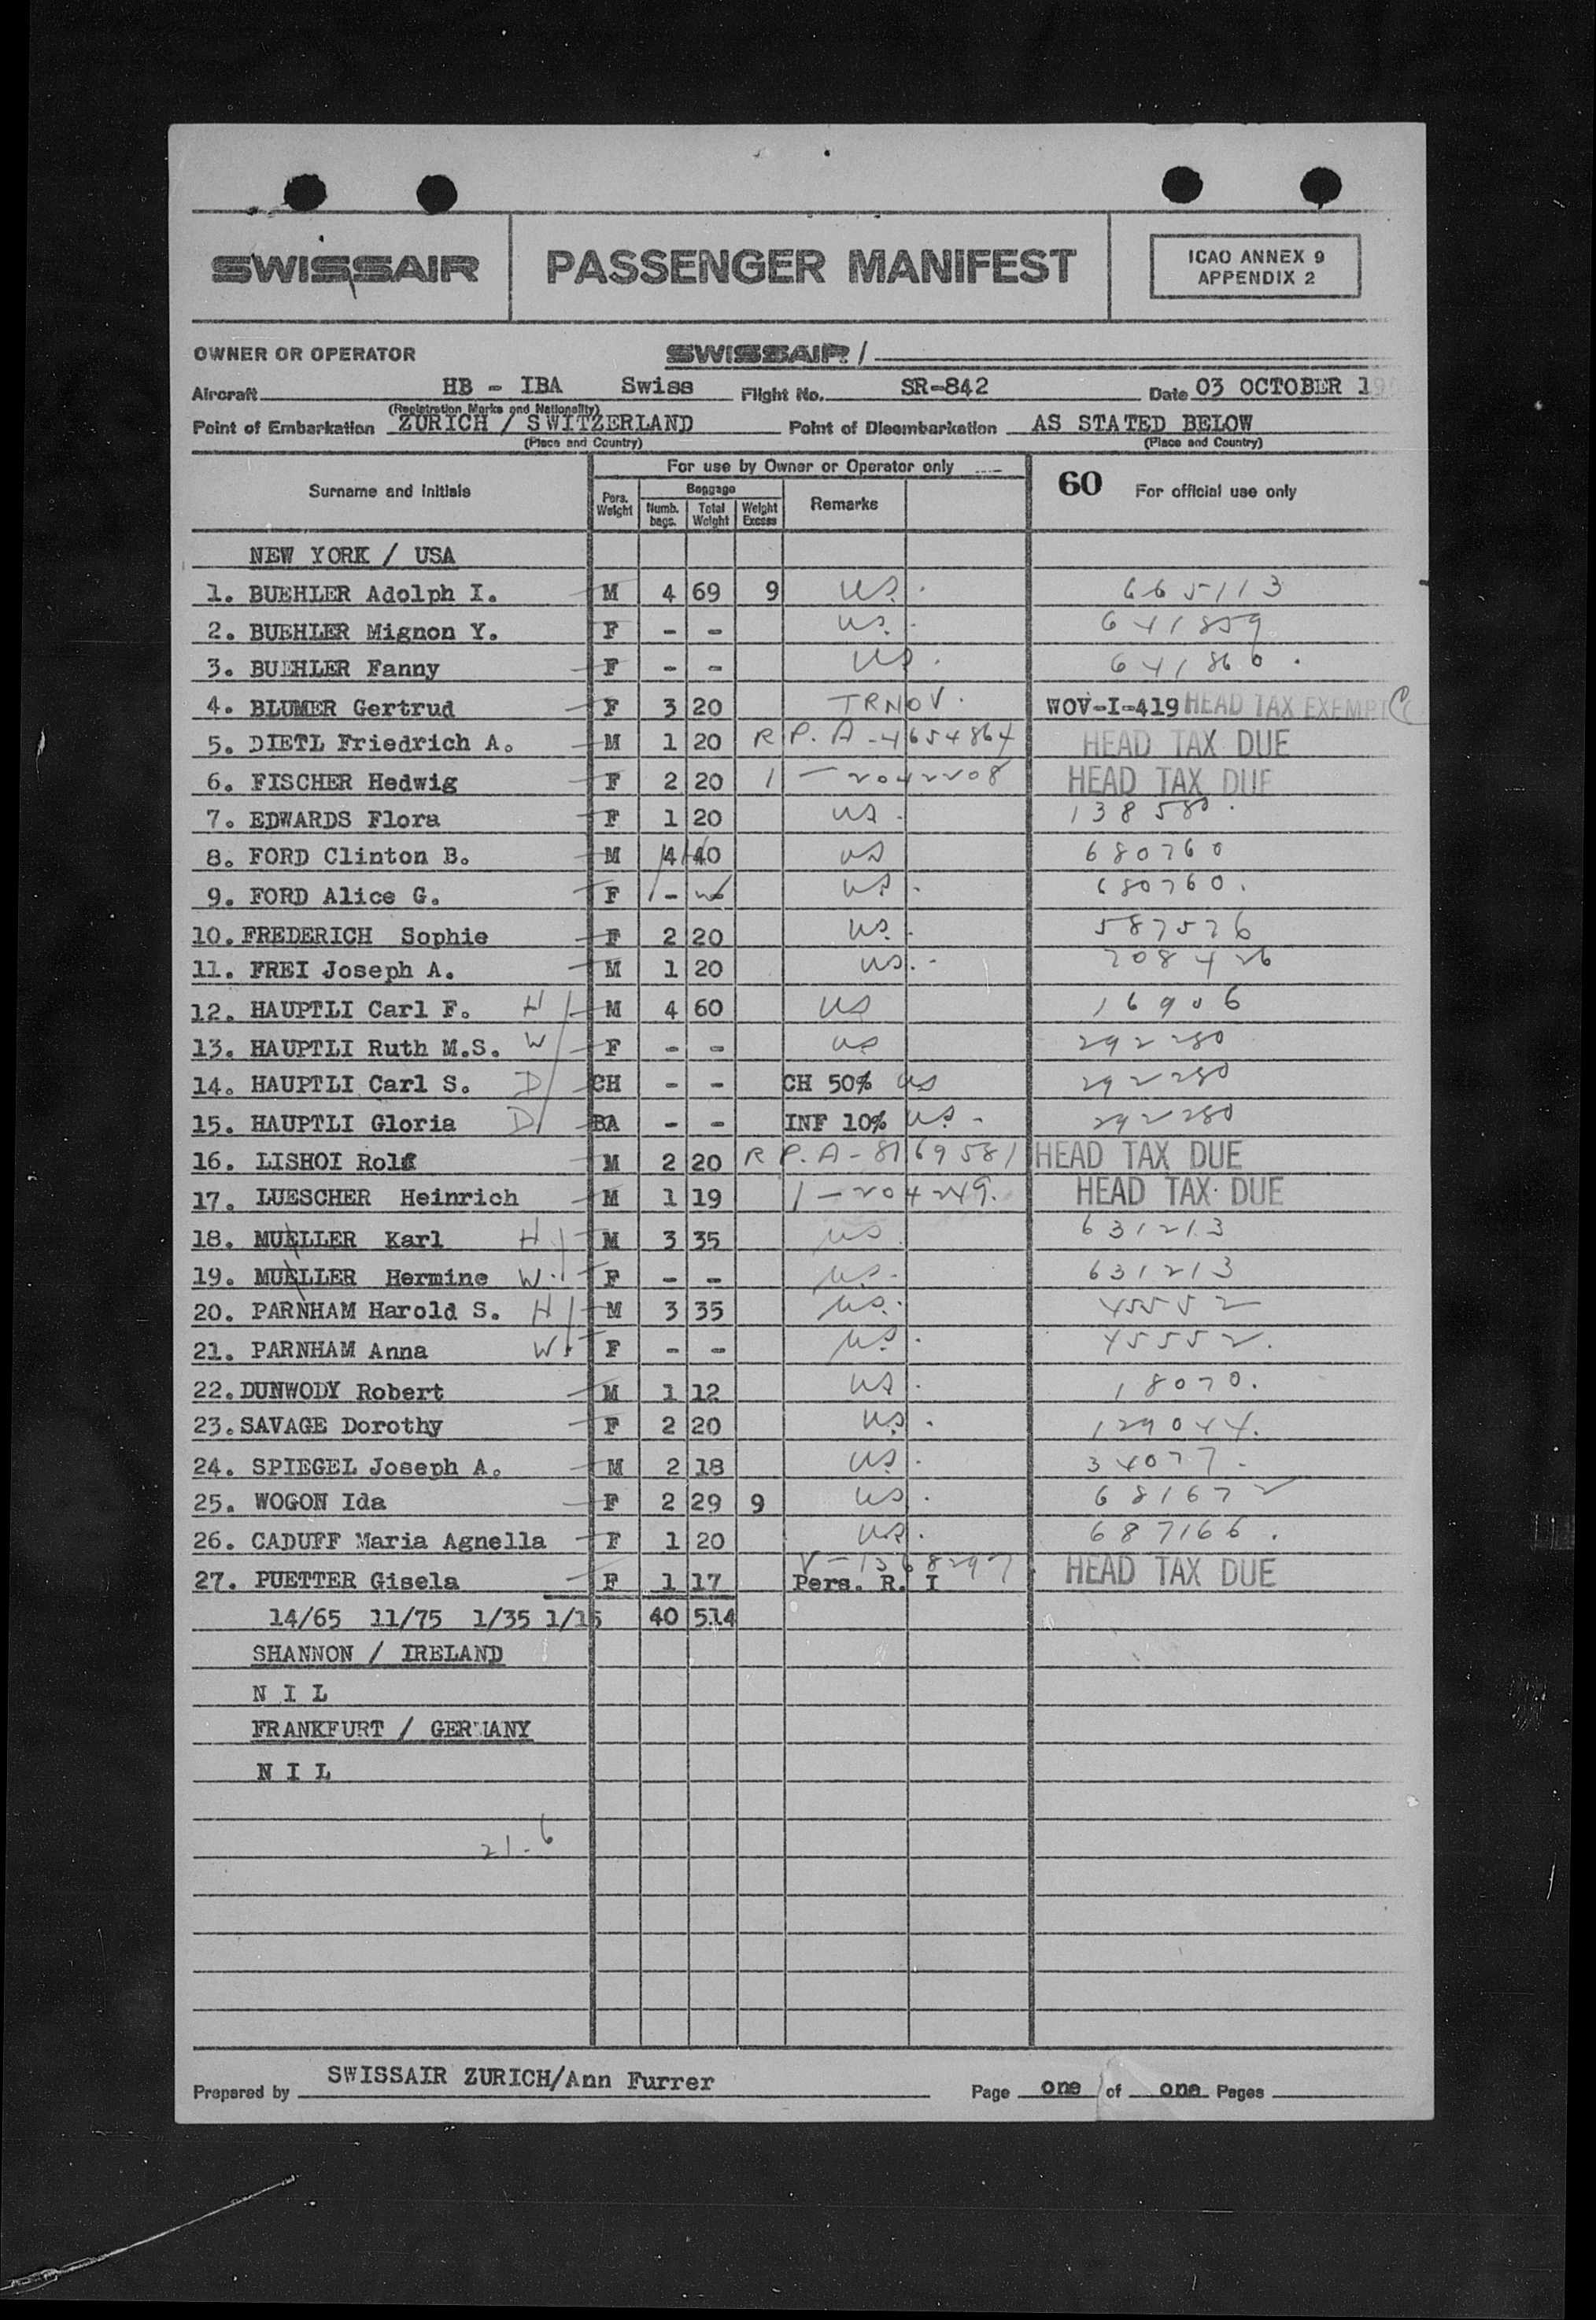 SWISSAIR PASSENGER MANIFEST ICAO ANNEX 9
APPENDIX 2
OWNER OR OPERATOR SWISSAIR /
Aircraft HB - IBA Swiss Flight No. SR-842 Date 03 OCTOBER 19
(Registration Marks and Nationality)
Point of Embarkation ZURICH / SWITZERLAND Point of Disembarkation AS STATED BELOW
(Place and Country) (Place and Country)
For use by Owner or Operator only
Surname and Initials Pers. Weight Baggage Numb. bags. Total Weight Weight Excess Remarks 60 For official use only
NEW YORK / USA
1. BUEHLER Adolph I. M 4 69 9 US. 665113
2. BUEHLER Mignon Y. F - - US. 641859
3. BUEHLER Fanny F - - US. 641860.
4. BLUMER Gertrud F 3 20 TRNOV. WOV-I-419 HEAD TAX EXEMPT
5. DIETL Friedrich A. M 1 20 R P. A-4654864 HEAD TAX DUE
6. FISCHER Hedwig F 2 20 1-2042208 HEAD TAX DUE
7. EDWARDS Flora F 1 20 US. 138580.
8. FORD Clinton B. M 4 40 US 680760
9. FORD Alice G. F - US. 680760.
10. FREDERICH Sophie F 2 20 US. 587576
11. FREI Joseph A. M 1 20 US. 208426
12. HAUPTLI Carl F. H M 4 60 US 16906
13. HAUPTLI Ruth M.S. W F - - US 292280
14. HAUPTLI Carl S. D CH - - CH 50% US 292280
15. HAUPTLI Gloria D BA - - INF 10% US. 292280
16. LISHOI Rolf M 2 20 R P. A-8169581 HEAD TAX DUE
17. LUESCHER Heinrich M 1 19 1-204249. HEAD TAX DUE
18. MUELLER Karl H M 3 35 US 631213
19. MUELLER Hermine W. F - - US. 631213
20. PARNHAM Harold S. H M 3 35 US. 45552
21. PARNHAM Anna W. F - - US. 45552.
22. DUNWODY Robert M 1 12 US. 18070.
23. SAVAGE Dorothy F 2 20 US. 129044.
24. SPIEGEL Joseph A. M 2 18 US. 34077.
25. WOGON Ida F 2 29 9 US. 681672
26. CADUFF Maria Agnella F 1 20 US. 687166.
V-1368297
27. PUETTER Gisela F 1 17 Pers. R. I HEAD TAX DUE
14/65 11/75 1/35 1/15 40 514
SHANNON / IRELAND
N I L
FRANKFURT / GERMANY
N I L
21-6
Prepared by SWISSAIR ZURICH/Ann Furrer Page one of one Pages